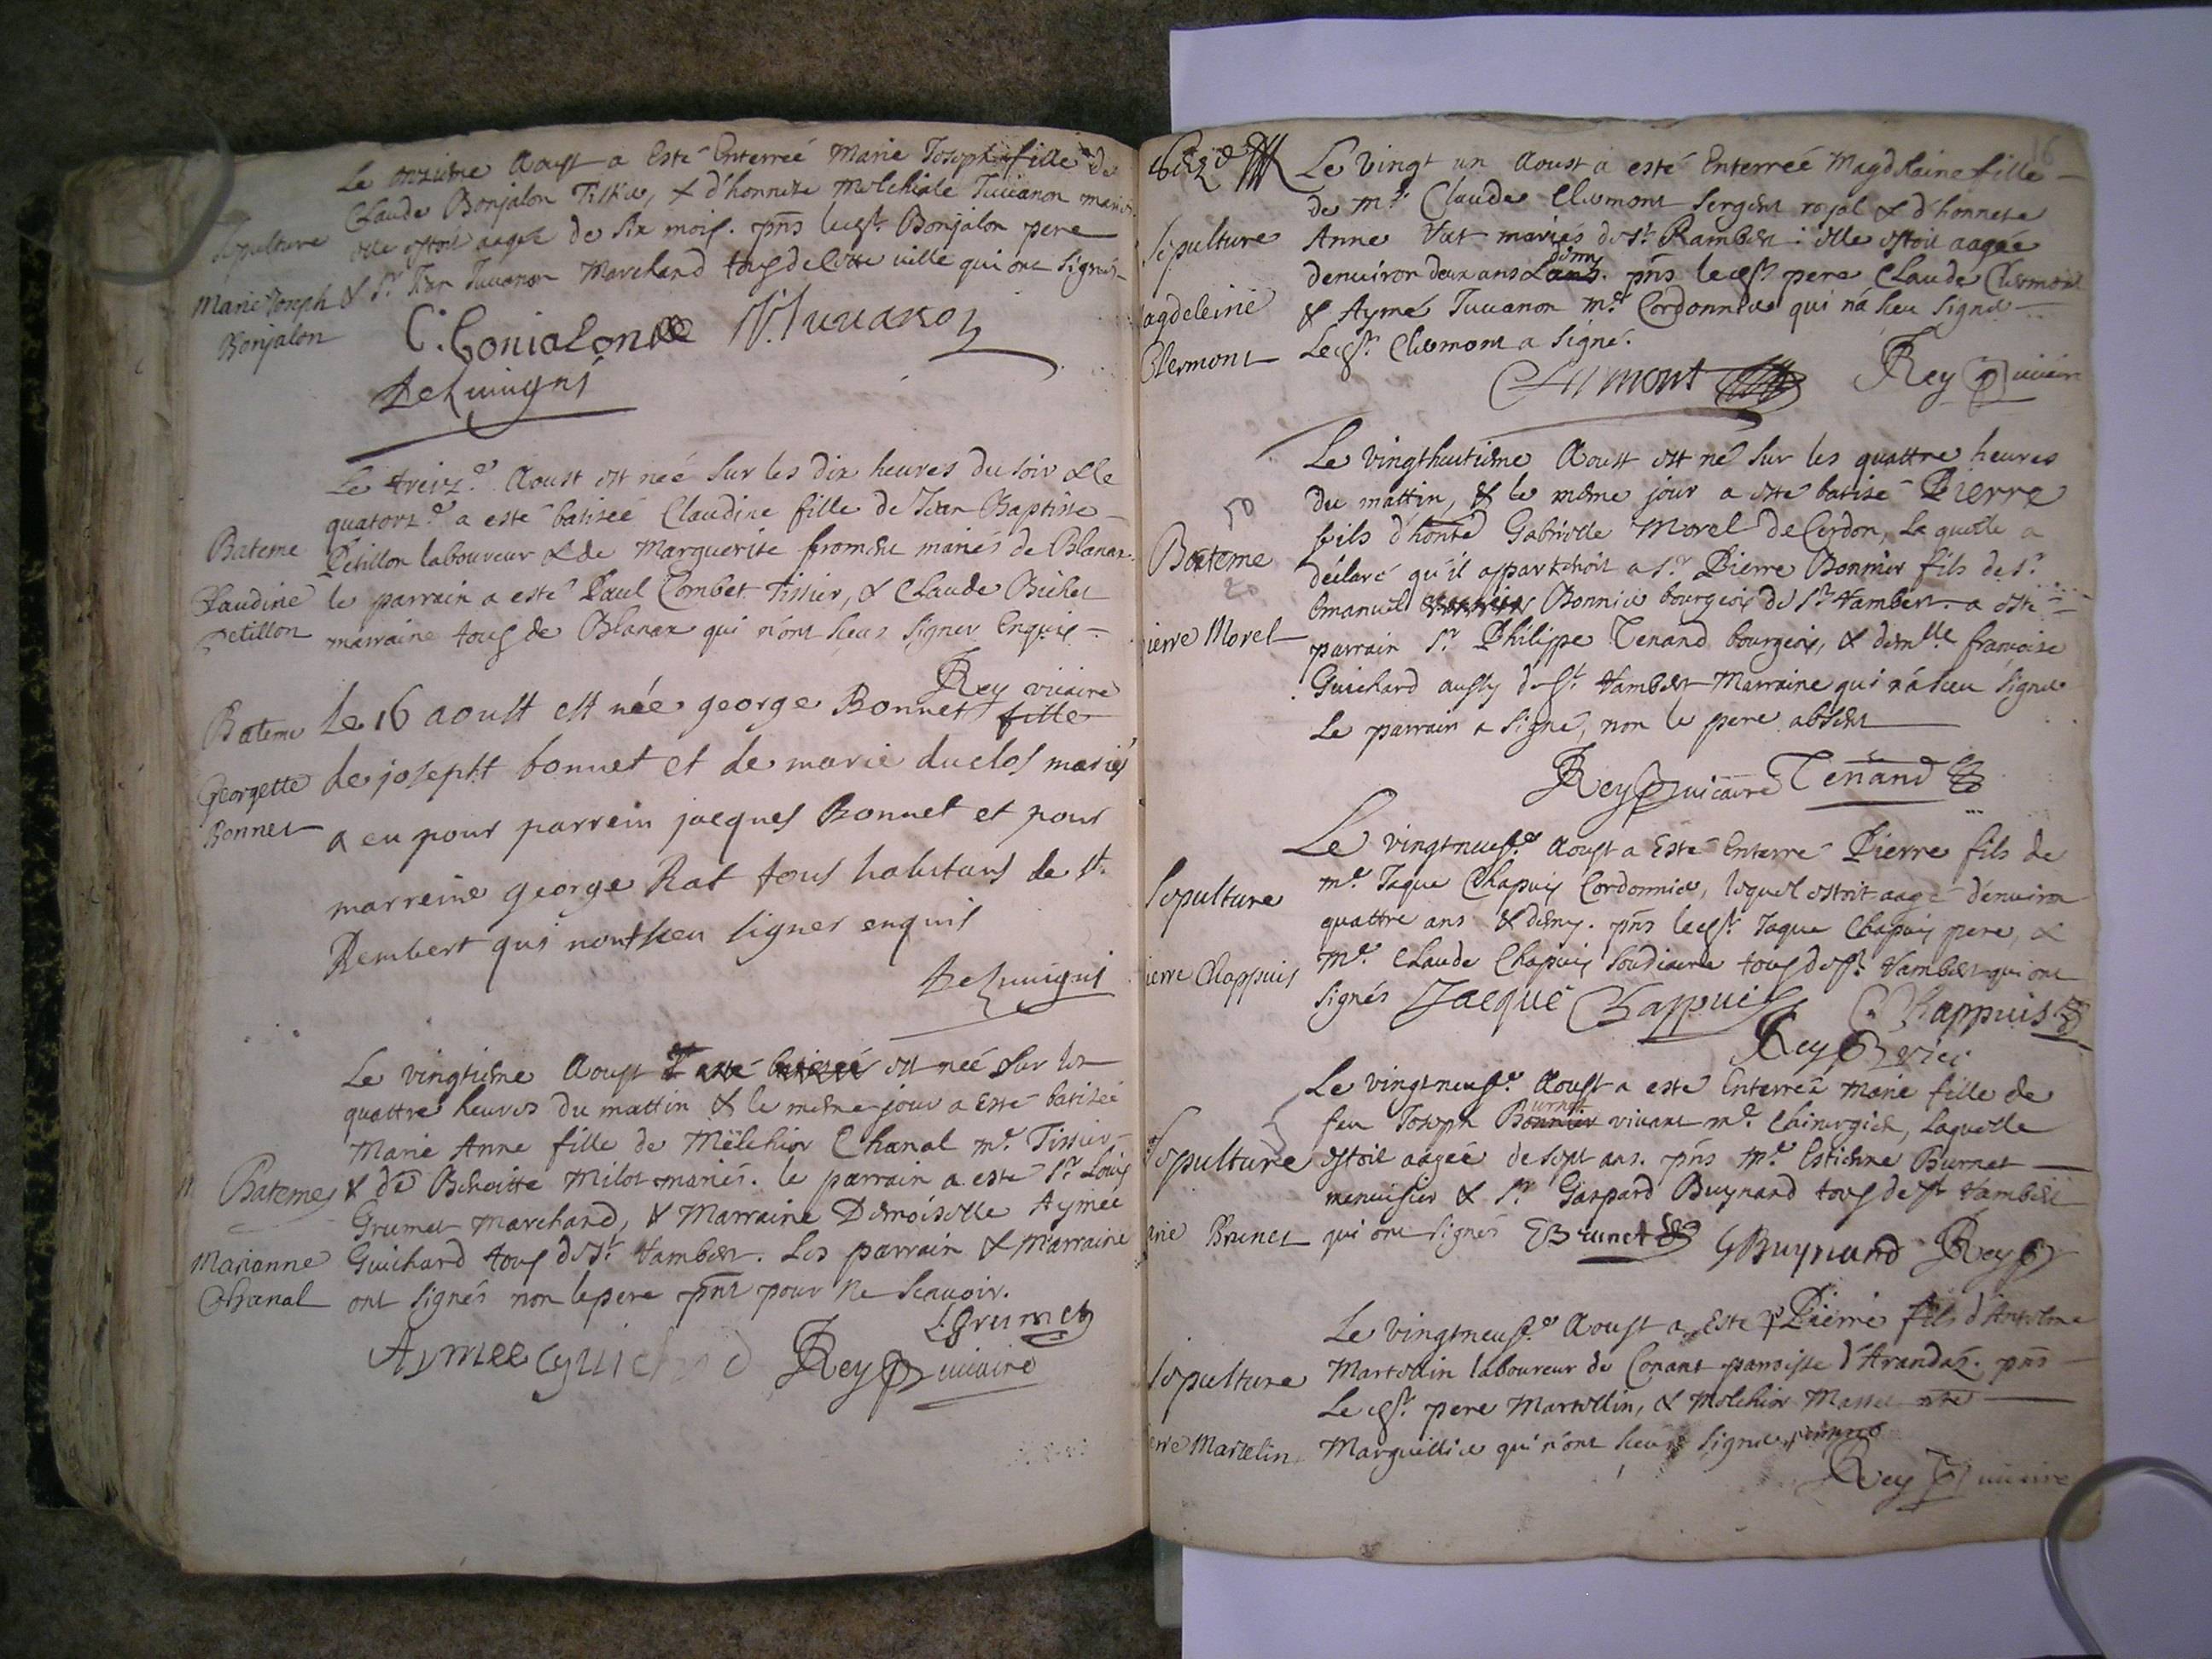 Le onzieme Aoust a Esté Enterreé Marie Joseph fille de
Claude Bonjalon Tissier, & d'honneste Melchiole Juvanon mariés
Sepulture
elle estoit aageé de six mois. pñs led.st Bonjalon pere
Marie Joseph
& Sr. Jean Juvanon Marchand tous de Cette ville qui ont signés
Bonjalon
C. bonialon J. Juuanon
DeLuuigni
Le treizе. Aoust est neé sur les dix heures du soir & le
quatorze. a esté batiseé Claudine fille de Jean Baptiste
Bateme
Petillon laboureur & de Marguerite froment mariés de Blanaz.
Claudine
le parrain a esté Paul Combet Tissier, & Claude Bichet
Petillon
marraine tous de Blanaz qui n'ont sceus signer Enquis
Rey vicaire
Bateme
Le 16 aoust est née george Bonnet fille
Georgette
de josepht bonnet et de marie duclos mariés
Bonnet
a eu pour parrein jacques Bonnet et pour
marreine george Rat tous habitans de st.
Rembert qui nont sceu signer enquis
DeLuuigni
Le vingtieme Aoust a esté batiseé est neé sur les
quattre heures du mattin & le meme jour a esté batiseé
Marie Anne fille de Melchior Chanal me. Tissier
Batemes
& de Benoitte Milot mariés. le parrain a esté Sr. Louis
Grumet marchand, & Marraine Demoiselle Aymeé
Marianne
Guichard tous de St. Rambert. Les parrain & Marraine
Chanal
ont signés non le pere pñt pour ne scavoir.
L. Grumet
Aymee Guichard Rey vicaire
16
Le vingt un Aoust a esté Enterreé Magdelaine fille
de me. Claude Clermont sergent royal & d'honneste
Sepulture
Anne Vat mariés de St. Rambert: elle estoit aageé
demy
denviron deux ans & ans. pñs led.st pere Claude Clermont
Magdeleine
& Aymé Juvanon me. Cordonnier qui n'a sceu signer
Clermont
Led.st Clermont a signé.
Clermont Rey vicaire
Le vingthuitieme Aoust est né sur les quattre heures
50
du mattin, & le même jour a esté batisé Pierre
fils d'honte Gabrielle Morel de Cerdon, Laquelle a
Bateme
déclaré qu'il appartenoit a Sr. Pierre Bonnier fils de Sr.
20
Emanuel Bonnier bourgeois de St. Rambert. a esté
Pierre Morel
parrain Sr. Philippe Tenand bourgeois, & demlle. françoise
Guichard aussy de St. Rambert Marraine qui n'a sceu signer
Le parrain a signé, non le pere absent
Rey vicaire Tenand
Le vingtneufe. Aoust a Esté Enterré Pierre fils de
me. Jaque Chapuis Cordonnier, lequel estoit aagé d'environ
Sepulture
quattre ans & demy. pñs led.st Jaque Chapuis pere, &
Pierre Chappuis
me. Claude Chapuis Soudiacre tous de St. Rambert qui ont
signés Jacque Chappuis C. Chappuis
Rey vici
Le vingtneufe. Aoust a esté Enterreé Marie fille de
feu Joseph Bonnier vivant me. Chirurgien, Laquelle
Sepulture
estoit aageé de sept ans. pñs me. Estienne Burnet
menuisier & Sr. Gaspard Buynand tous de St. Rambert
Brunet
qui ont signés E Brunet G Buynand Rey
Le vingtneufe. Aoust a Esté Pierre fils d'Antelme
Sepulture
Martellin laboureur de Conant paroisse d'Arandaz. pñs
Led.st pere Martellin, & Melchior Masset
Pierre Martelin
Marguillier qui n'ont sceus signer
Rey vicaire